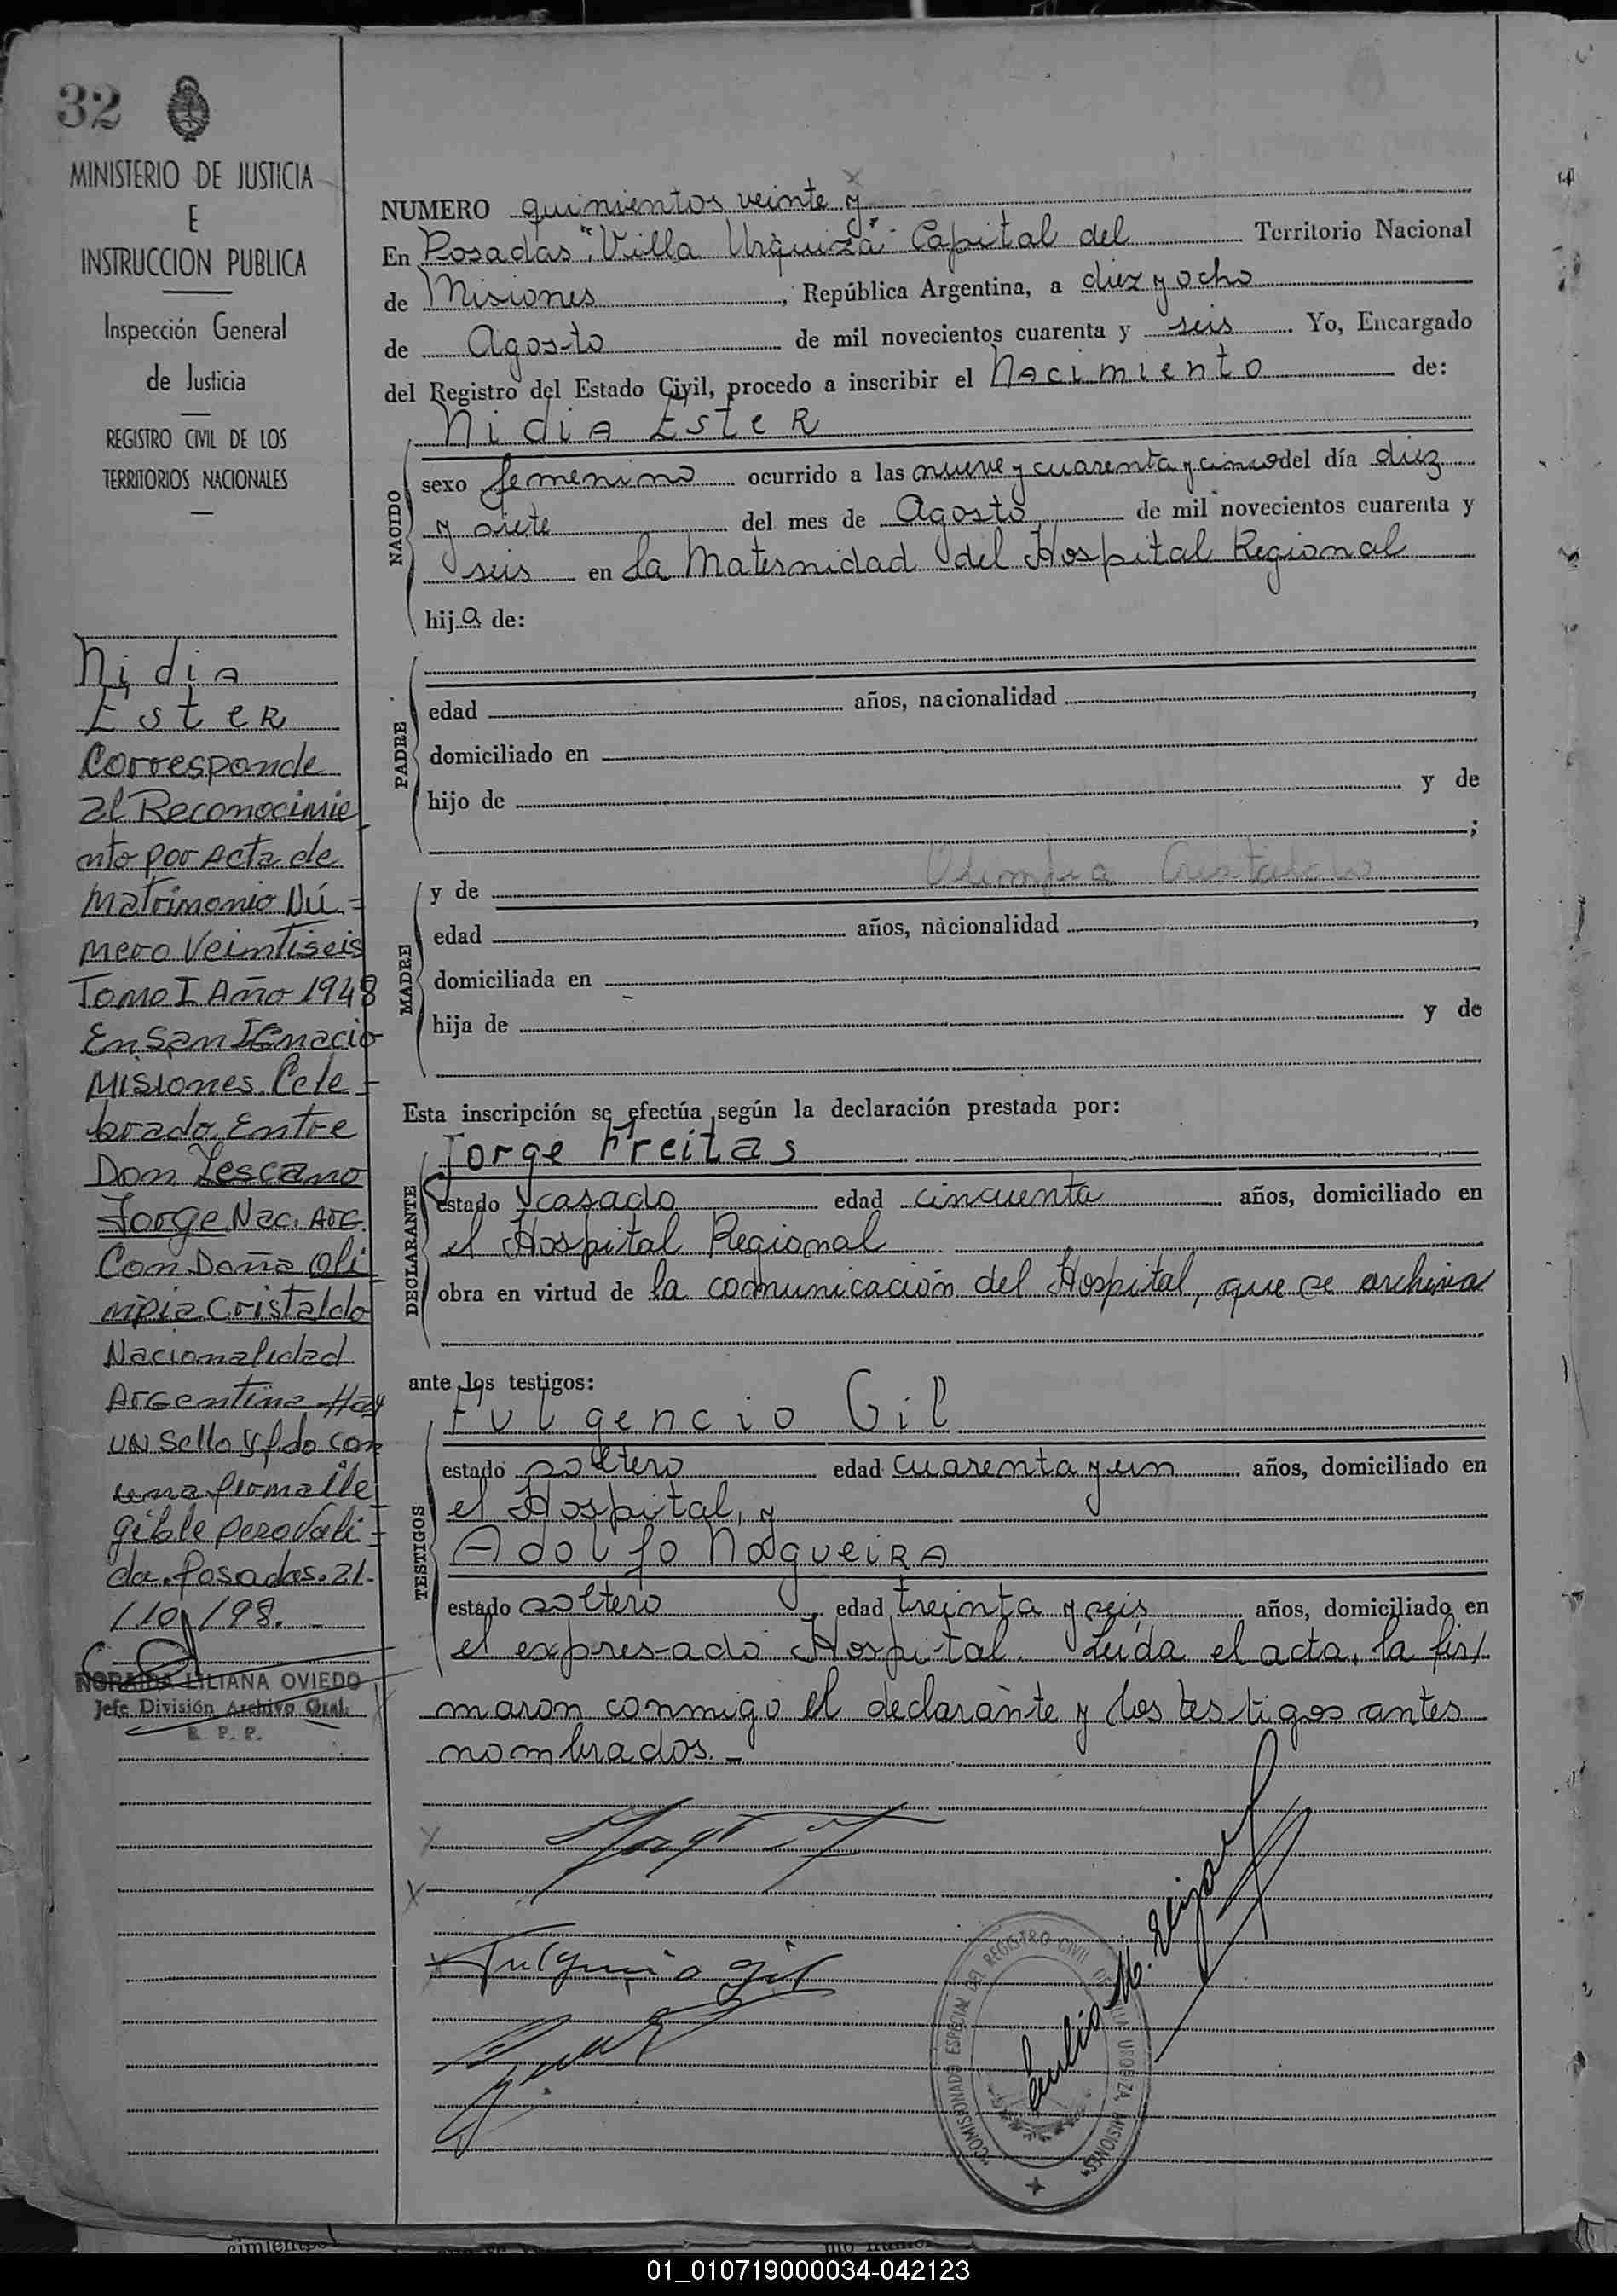 32
MINISTERIO DE JUSTICIA
E
INSTRUCCION PUBLICA
Inspección General
de Justicia
REGISTRO CIVIL DE LOS
TERRITORIOS NACIONALES
Nidia
Ester
Corresponde
al Reconocimie
nto por Acta de
Matrimonio Nú=
mero Veintiseis
Tomo I Año 1948
En San IGnacio
Misiones. Cele-
brado Entre
Don Lescano
Jorge Nac. Arg.
Con Doña Oli
mpia Cristaldo
Nacionalidad
Argentina Hay
un sello y fdo con
una firma ile
gible pero vali=
da. Posadas. 21.
/10/98.-
NORAIDA LILIANA OVIEDO
Jefe División Archivo Gral.
R. P. P.
NUMERO quinientos veinte y
En Posadas "Villa Urquiza" - Capital del Territorio Nacional
de Misiones, República Argentina, a diez y ocho
de Agosto de mil novecientos cuarenta y seis. Yo, Encargado
del Registro del Estado Civil, procedo a inscribir el Nacimiento de:
NACIDO
Nidia Ester
sexo femenino ocurrido a las nueve y cuarenta y cinco del día diez
y siete del mes de Agosto de mil novecientos cuarenta y
seis en la Maternidad del Hospital Regional
hija de:
PADRE
edad años, nacionalidad ,
domiciliado en
hijo de y de
;
MADRE
y de Olimpia Cristaldo
edad años, nacionalidad ,
domiciliada en
hija de y de
Esta inscripción se efectúa según la declaración prestada por:
DECLARANTE
Jorge Freitas
estado casado edad cincuenta años, domiciliado en
el Hospital Regional
obra en virtud de la comunicación del Hospital, que se archiva
ante los testigos:
TESTIGOS
Fulgencio Gil
estado soltero edad cuarenta y un años, domiciliado en
el Hospital, y
Adolfo Nogueira
estado soltero, edad treinta y seis años, domiciliado en
el expresado Hospital. Leída el acta, la fir/
maron conmigo el declarante y los testigos antes
nombrados.-
Fulgencio Gil
COMISIONADO ESPECIAL DEL REGISTRO CIVIL DE VILLA URQUIZA, MISIONES
01_010719000034-042123